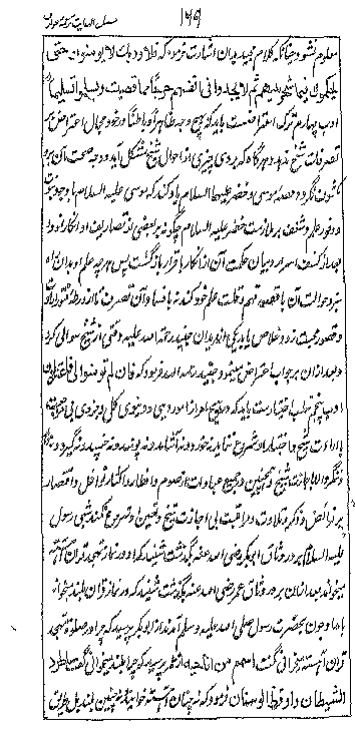 ۱۷۹
معلوم نشود چنانکه کلام مجید بدان اشارت فرموده که فلا و ربک لا یومنون حتی
یحکموک فیما شجر بینهم ثم لا یجدوا فی انفسهم حرجا مما قضیت و یسلموا تسلیما
ادب چهارم ترک اعتراضست باید که بهیچ وجه ظاهرا و باطنا در خود مجال اعتراض بر
تصرفات شیخ ندهد و هر گاه که بر وی چیزی از احوال شیخ مشکل آید و وجه صحت آن برو
مکشوف نگردد قصه موسی و خضر علیهما السلام یاد کند که موسی علیه السلام با وجود نبوت
و وفور علم و شغف بر ملازمت خضر علیه السلام چگونه بر بعضی از تصاریف او انکار نمود
بعد از کشف اسرار و بیان حکمت آن از انکار باقرار بازگشت پس هر چه علم او بدان راه
نبرد حوالت آن با قصور فهم و قلت علم خود کند نه با
و قصور محبت زود خلاص یابد یکی از مریدان جنید رحمة الله علیه وقتی از شیخ سوالی کرد
و بعد از آن بر جواب اعتراض مینمود جنید رحمه الله فرمود که فان لم تومنوا لی فاعتزلون
ادب پنجم سلب اختیارست باید که در هیچ امر از امور دینی و دنیوی کلی و جزوی بی
با ارادت شیخ و اختیار او شروع ننماید نه خورد و نه آشامد و نه پوشد و نه خسپد و نه گیرد و نه
و نگردد الا باجازت شیخ و همچنین در جمیع عبادات از صوم و افطار و اکثار نوافل و اقتصار
بر فرائض و ذکر و تلاوت و مراقبت بی اجازت شیخ و تعیین او شروع نکند شبی رسول
علیه السلام بر در وثاق ابوبکر رضی الله عنه بگذشت شنید که او در نماز تهجد قرآن آهسته
میخواند بعد از آن بر در وثاق عمر رضی الله عنه بگذشت شنید که در نماز قرآن بلند میخواند
بامداد چون بحضرت رسول صلی الله علیه وسلم آمدند از ابوبکر پرسید که چرا در صلوة تهجد
قرآن آهسته میخوانی گفت اسمع من اناجیه از عمر پرسید که چرا بلند میخوانی گفت اطرد
الشیطان و اوقظ الوسنان فرمود که نه چنان آهسته خوانید و نه چنین بلند بل